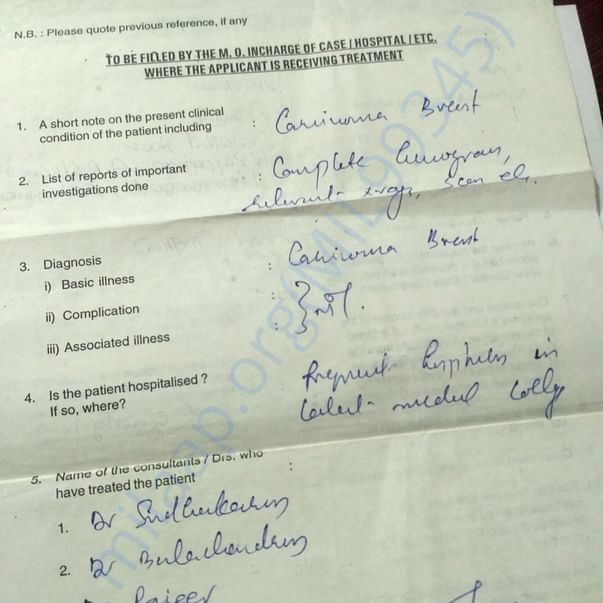 N.B. : Please quote previous reference, if any
TO BE FILLED BY THE M. O. INCHARGE OF CASE / HOSPITAL / ETC.
WHERE THE APPLICANT IS RECEIVING TREATMENT
1. A short note on the present clinical
condition of the patient including : Carcinoma Breast
2. List of reports of important
investigations done : Complete hemogram,
relevant x-rays, scan etc.
3. Diagnosis : Carcinoma Breast
i) Basic illness
ii) Complication : } Nil.
iii) Associated illness :
4. Is the patient hospitalised ? Frequent in
If so, where? Calicut medical College
5. Name of the consultants / Drs. who
have treated the patient :
1. Dr Sudhakaran
2. Dr Balachandran
milaap.org(MIL99345)